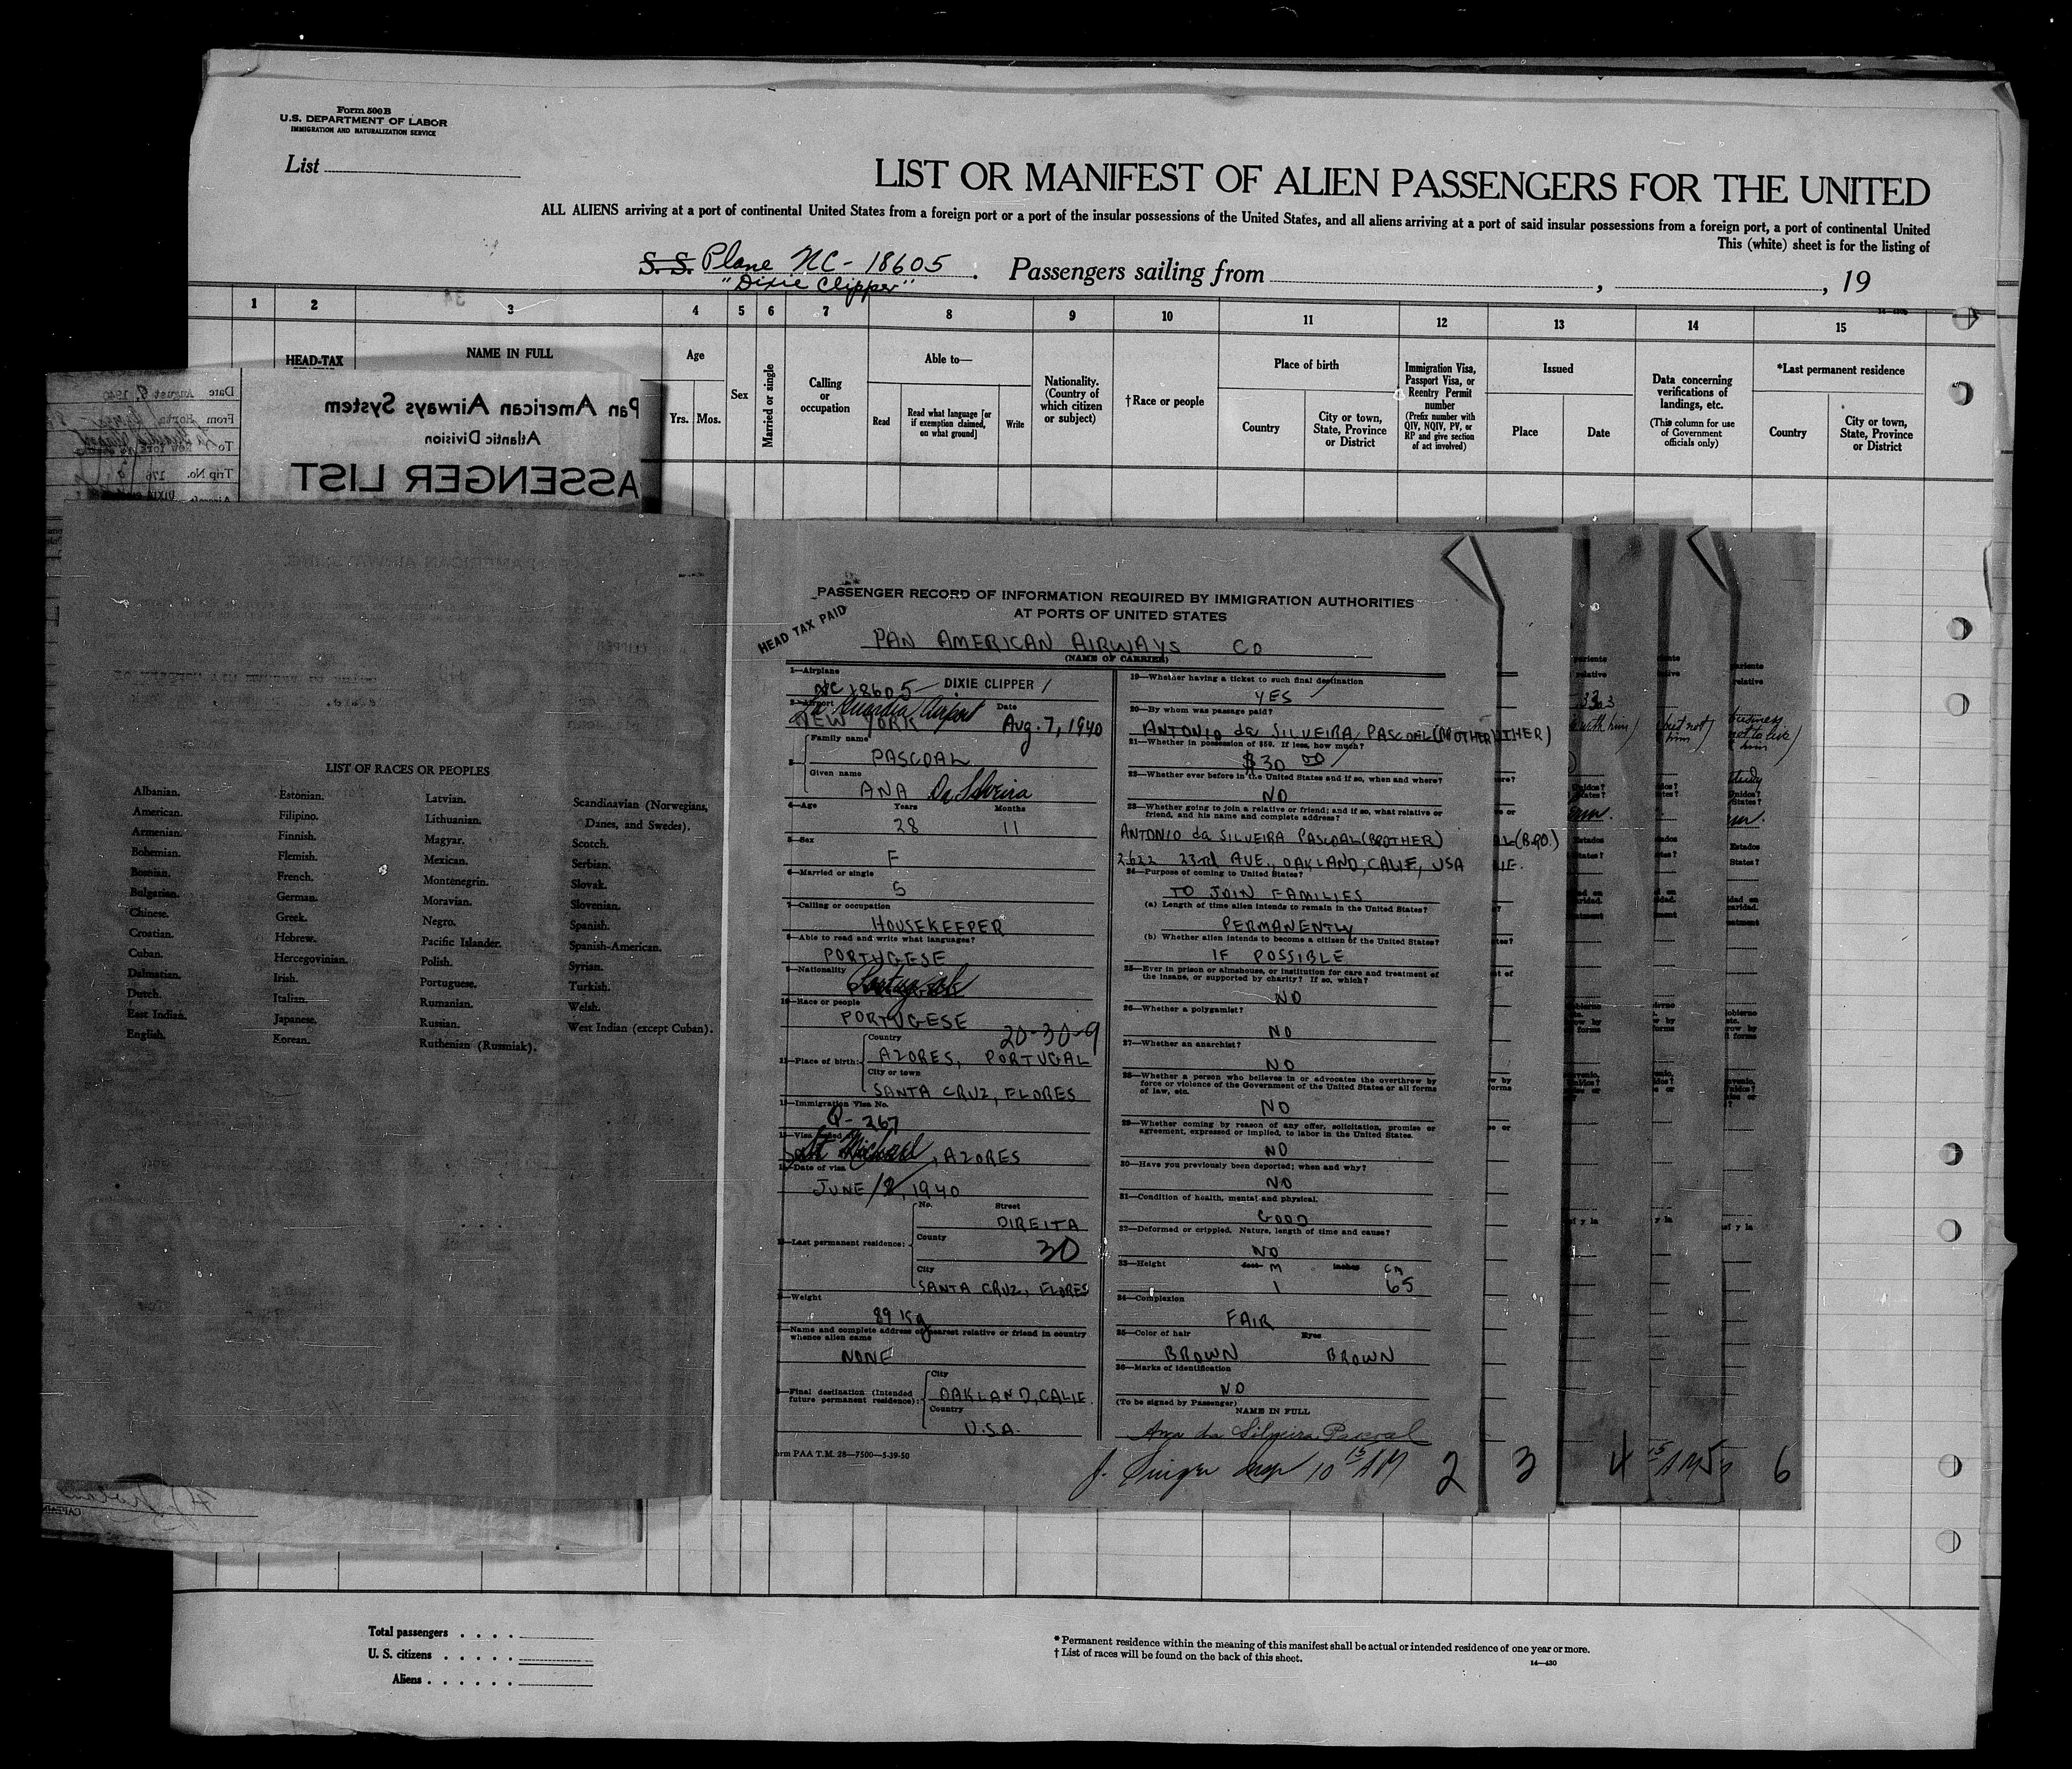 Form 500 B
U.S. DEPARTMENT OF LABOR
IMMIGRATION AND NATURALIZATION SERVICE
List
LIST OR MANIFEST OF ALIEN PASSENGERS FOR THE UNITED
ALL ALIENS arriving at a port of continental United States from a foreign port or a port of the insular possessions of the United States, and all aliens arriving at a port of said insular possessions from a foreign port, a port of continental United
This (white) sheet is for the listing of
S. S. Plane NC-18605. Passengers sailing from , , 19
"Dixie Clipper"
1 2 3 4 5 6 7 8 9 10 11 12 13 14 15
HEAD-TAX
NAME IN FULL
Age
Yrs. Mos.
Sex
Married or single
Calling
or
occupation
Able to—
Read
Read what language [or
if exemption claimed,
on what ground]
Write
Nationality.
(Country of
which citizen
or subject)
†Race or people
Place of birth
Country
City or town,
State, Province
or District
Immigration Visa,
Passport Visa, or
Reentry Permit
number
(Prefix number with
QIV, NQIV, PV, or
RP and give section
of act involved)
Issued
Place
Date
Data concerning
verifications of
landings, etc.
(This column for use
of Government
officials only)
*Last permanent residence
Country
City or town,
State, Province
or District
Pan American Airways System
Atlantic Division
ASSENGER LIST
Date August 9, 1940
From Horta
To New York
Trip No. 176
LIST OF RACES OR PEOPLES
Albanian.
American.
Armenian.
Bohemian.
Bosnian.
Bulgarian.
Chinese.
Croatian.
Cuban.
Dalmatian.
Dutch.
East Indian.
English.
Estonian.
Filipino.
Finnish.
Flemish.
French.
German.
Greek.
Hebrew.
Hercegovinian.
Irish.
Italian.
Japanese.
Korean.
Latvian.
Lithuanian.
Magyar.
Mexican.
Montenegrin.
Moravian.
Negro.
Pacific Islander.
Polish.
Portuguese.
Rumanian.
Russian.
Ruthenian (Russniak).
Scandinavian (Norwegians,
Danes, and Swedes).
Scotch.
Serbian.
Slovak.
Slovenian.
Spanish.
Spanish-American.
Syrian.
Turkish.
Welsh.
West Indian (except Cuban).
PASSENGER RECORD OF INFORMATION REQUIRED BY IMMIGRATION AUTHORITIES
AT PORTS OF UNITED STATES
HEAD TAX PAID
PAN AMERICAN AIRWAYS CO
(NAME OF CARRIER)
1—Airplane
NC 18605 DIXIE CLIPPER
2—Airport Date
La Guardia Airport
NEW YORK Aug. 7, 1940
3
Family name
PASCOAL
Given name
ANA Da Silveira
4—Age Years Months
28 11
5—Sex
F
6—Married or single
S
7—Calling or occupation
HOUSEKEEPER
8—Able to read and write what languages?
PORTUGESE
9—Nationality
10—Race or people
PORTUGESE
20-30-9
11—Place of birth:
Country
AZORES, PORTUGAL
City or town
SANTA CRUZ, FLORES
12—Immigration Visa No.
Q-267
St Michael, AZORES
14—Date of visa
JUNE 12, 1940
15—Last permanent residence:
No. Street
DIREITA
County
30
City
SANTA CRUZ, FLORES
Weight
89 Kg
Name and complete address of nearest relative or friend in country
whence alien came
NONE
Final destination (Intended
future permanent residence):
City
OAKLAND, CALIF.
Country
U.S.A.
orm PAA T.M. 28—7500—5-39-50
19—Whether having a ticket to such final destination
YES
20—By whom was passage paid?
ANTONIO da SILVEIRA PASCOAL (BROTHER)
21—Whether in possession of $50. If less, how much?
$30 00
22—Whether ever before in the United States and if so, when and where?
NO
23—Whether going to join a relative or friend; and if so, what relative or
friend, and his name and complete address?
ANTONIO da SILVEIRA PASCOAL (BROTHER)
2622 23rd AVE., OAKLAND, CALIF, USA
24—Purpose of coming to United States?
TO JOIN FAMILIES
(a) Length of time alien intends to remain in the United States?
PERMANENTLY
(b) Whether alien intends to become a citizen of the United States?
IF POSSIBLE
25—Ever in prison or almshouse, or institution for care and treatment of
the insane, or supported by charity? If so, which?
NO
26—Whether a polygamist?
NO
27—Whether an anarchist?
NO
28—Whether a person who believes in or advocates the overthrow by
force or violence of the Government of the United States or all forms
of law, etc.
NO
29—Whether coming by reason of any offer, solicitation, promise or
agreement, expressed or implied, to labor in the United States.
NO
30—Have you previously been deported; when and why?
NO
31—Condition of health, mental and physical.
GOOD
32—Deformed or crippled. Nature, length of time and cause?
NO
33—Height feet M inches CM
1 65
34—Complexion
FAIR
35—Color of hair Eyes
BROWN BROWN
36—Marks of identification
NO
(To be signed by Passenger)
NAME IN FULL
Ana da Silveira Pascoal
10 15 AM 2 3 4 5 6
Total passengers
U. S. citizens
Aliens
* Permanent residence within the meaning of this manifest shall be actual or intended residence of one year or more.
† List of races will be found on the back of this sheet.
14—430